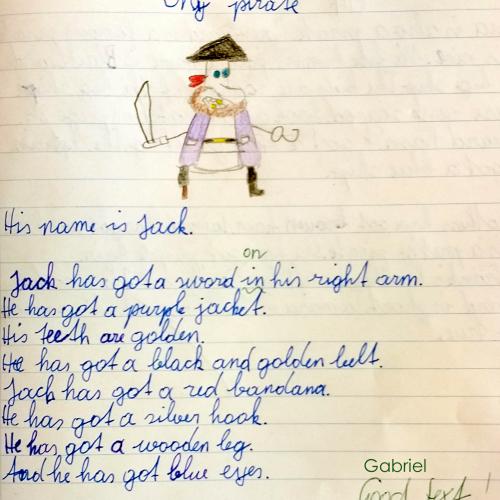 My pirate
His name is Jack.
on
Jack has got a sword in his right arm.
He has got a purple jacket.
His teeth are golden.
He has got a black and golden belt.
Jack has got a red bandana.
He has got a silver hook.
He has got a wooden leg.
And he has got blue eyes.
Gabriel
Good text!